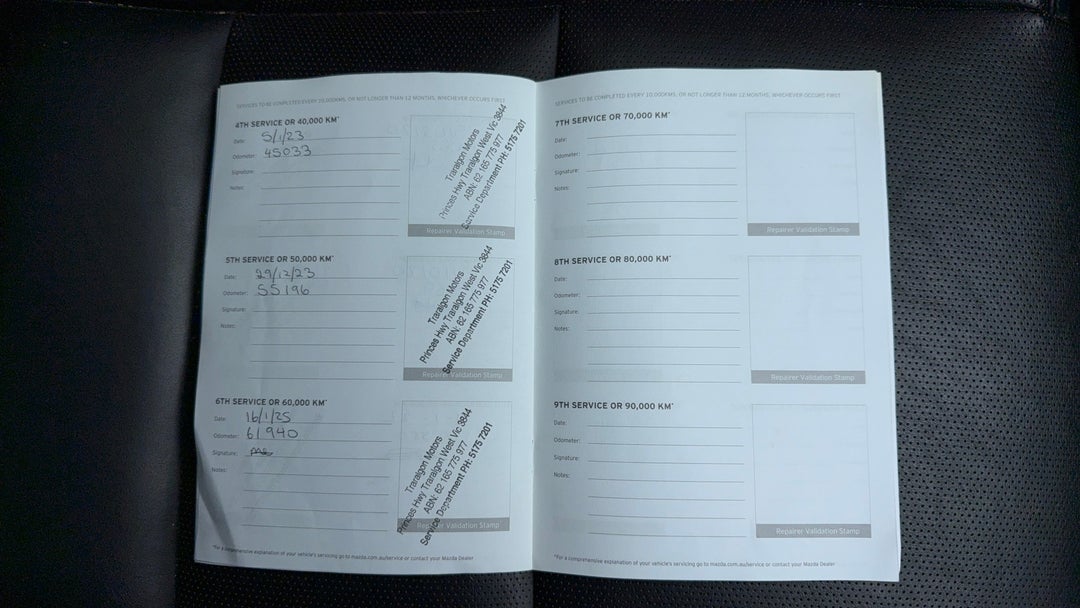 SERVICES TO BE COMPLETED EVERY 10,000KMS, OR NOT LONGER THAN 12 MONTHS, WHICHEVER OCCURS FIRST
4TH SERVICE OR 40,000 KM*
Date: 5/1/23
Odometer: 45033
Signature:
Notes:
Traralgon Motors
Princes Hwy Traralgon West Vic 3844
ABN: 62 165 775 977
Service Department PH: 5175 7201
Repairer Validation Stamp
5TH SERVICE OR 50,000 KM*
Date: 29/12/23
Odometer: 55196
Signature:
Notes:
Traralgon Motors
Princes Hwy Traralgon West Vic 3844
ABN: 62 165 775 977
Service Department PH: 5175 7201
Repairer Validation Stamp
6TH SERVICE OR 60,000 KM*
Date: 16/1/25
Odometer: 61940
Signature:
Notes:
Traralgon Motors
Princes Hwy Traralgon West Vic 3844
ABN: 62 165 775 977
Service Department PH: 5175 7201
Repairer Validation Stamp
*For a comprehensive explanation of your vehicle's servicing go to mazda.com.au/service or contact your Mazda Dealer
SERVICES TO BE COMPLETED EVERY 10,000KMS, OR NOT LONGER THAN 12 MONTHS, WHICHEVER OCCURS FIRST
7TH SERVICE OR 70,000 KM*
Date:
Odometer:
Signature:
Notes:
Repairer Validation Stamp
8TH SERVICE OR 80,000 KM*
Date:
Odometer:
Signature:
Notes:
Repairer Validation Stamp
9TH SERVICE OR 90,000 KM*
Date:
Odometer:
Signature:
Notes:
Repairer Validation Stamp
*For a comprehensive explanation of your vehicle's servicing go to mazda.com.au/service or contact your Mazda Dealer